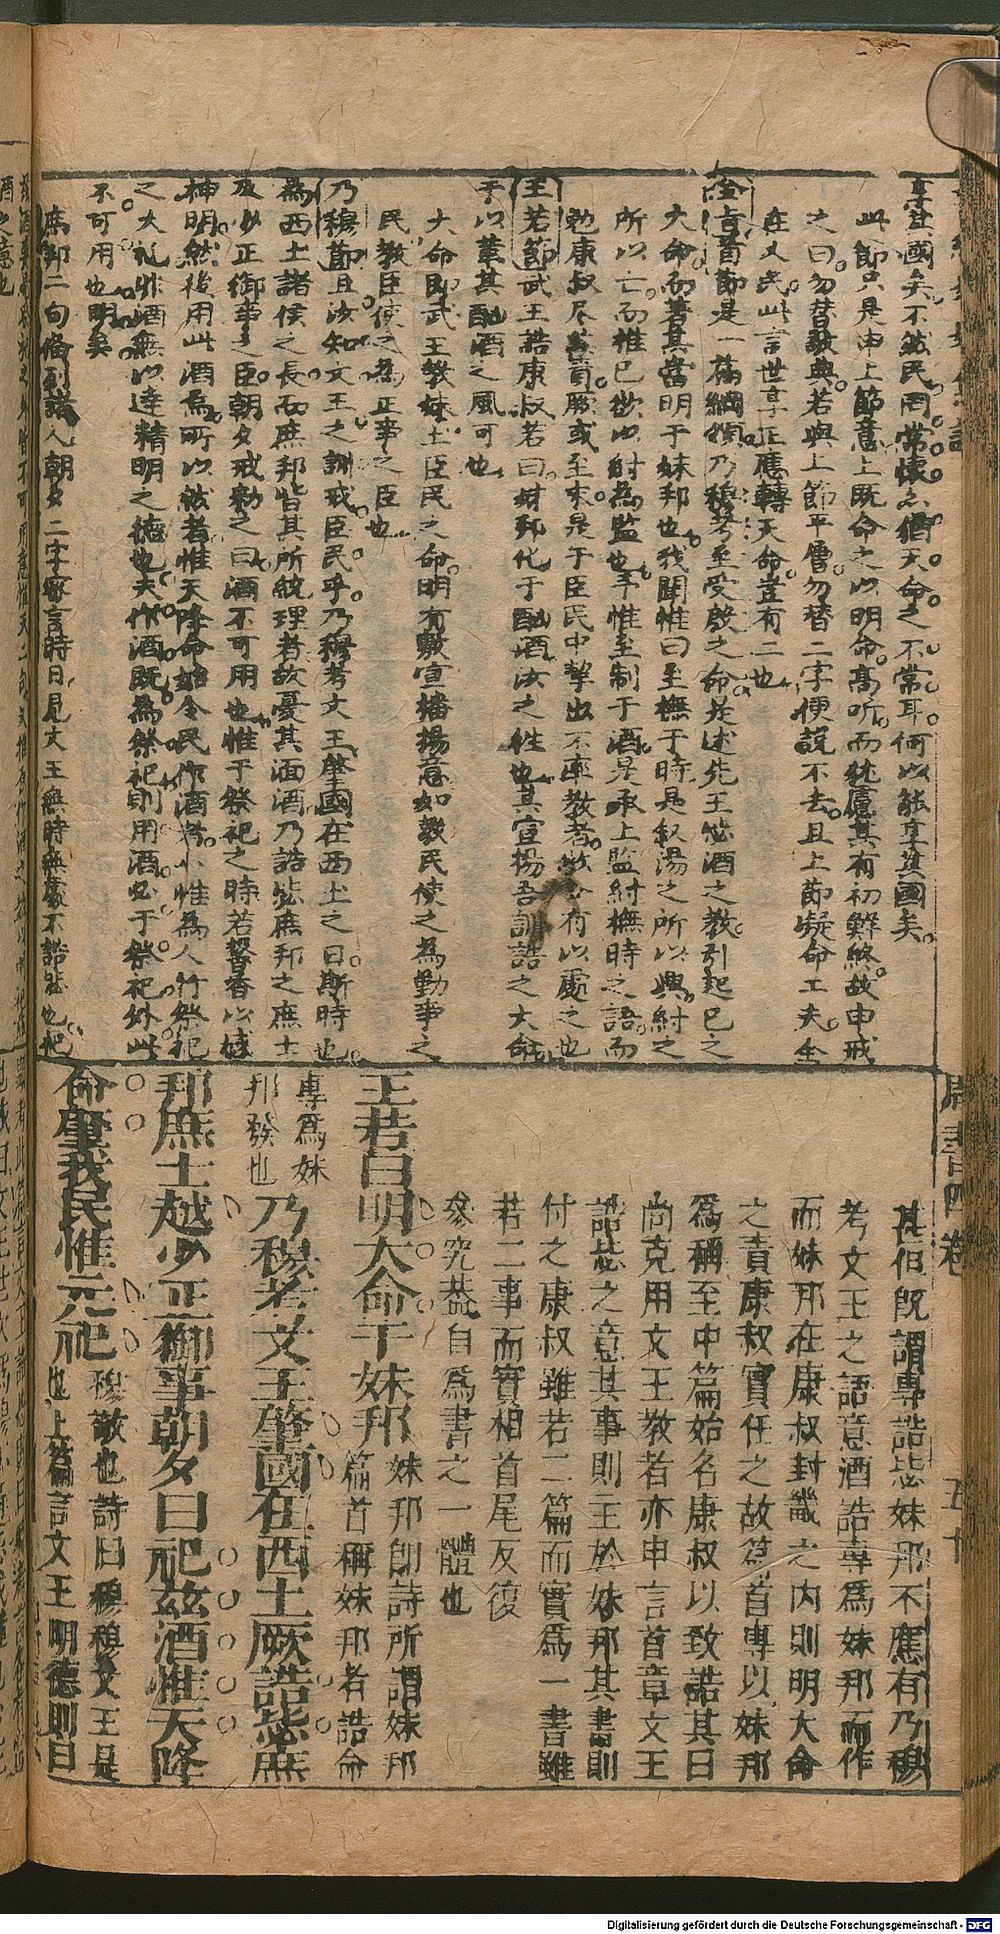 享其國矣不然民罔常懷亦猶天命之不常耳何以能享其國矣
此節只是申上節意上既命之以明命高听而猶慮其有初鮮終故申戒
之曰勿替敬典若與上節平層勿替二字便説不去且上節凝命工夫全
在乂民此言世享正應轉天命豈有二也
全旨首節是一篇綱領乃穆考至受殷之命是述先王毖酒之教引起已之
大命而著其當明于妹邦也我聞惟曰至撫于時是叙湯之所以興紂之
所以亡而惟已欲以紂為監也予惟至制于酒是承上監紂撫時之語而
勉康叔尽其責厥或至末是于臣民中摯出不率教者於以有以處之也
王若節武王誥康叔若曰妹邦化于酗酒汝之往也其宣揚吾訓誥之大命
于以革其酗酒之風可也
大命即武王教妹土臣民之命明有敷宣播揚意如教民使之為勤事之
民教臣使之為正事之臣也
乃穆節且汝知文王之訓戒臣民乎乃穆考文王肇國在西土之日斯時也
為西土諸侯之長而庶邦皆其所統理者故憂其湎酒乃誥毖庶邦之庶士
及少正御事之臣朝夕戒勑之曰酒不可用也惟于祭祀之時若馨香以達
神明然後用此酒焉所以然者惟天降命始令民作酒者亦惟為人行祭祀
之大礼非酒無以達精明之德也夫作酒既為祭祀則用酒必于祭祀外此
不可用也明矣
庶邦二句脩列諸人朝夕二字專言時日見文王無時無處不誥毖也祀
尚書四卷
五十
其但既謂專誥毖妹邦不應有乃穆
考文王之語意酒誥專為妹邦而作
而妹邦在康叔封畿之内則明大命
之責康叔實任之故篇首專以妹邦
為稱至中篇始名康叔以致誥其曰
尚克用文王教者亦申言首章文王
誥毖之意其事則主於妹邦其書則
付之康叔雖若二篇而實為一書雖
若二事而實相首尾反復
參究蓋自為書之一體也
王若曰明大命于妹邦妹邦即詩所謂妹邦
篇首稱妹邦者誥命
專為妹
邦發也乃穆考文王肇國在西土厥誥毖庶
邦庶士越少正御事朝夕曰祀茲酒惟天降
命肇我民惟元祀穆敬也詩曰穆穆文王是
也上篇言文王明德則曰
Digitalisierung gefördert durch die Deutsche Forschungsgemeinschaft - DFG